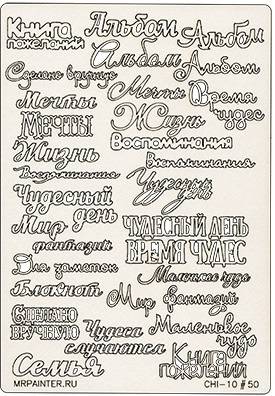 Книга пожеланий
Альбом
Альбом
Альбом
Альбом
Сделано вручную
Мечты
Мечты
Время чудес
Мечты
Жизнь
Жизнь
Воспоминания
Воспоминания
Воспоминания
Чудесный день
Чудесный день
Мир фантазий
ЧУДЕСНЫЙ ДЕНЬ
ВРЕМЯ ЧУДЕС
Для заметок
Маленькое чудо
Блокнот
Мир фантазий
СДЕЛАНО ВРУЧНУЮ
Чудеса случаются
Маленькое чудо
Семья
Книга пожеланий
MRPAINTER.RU
CHI-10 #50